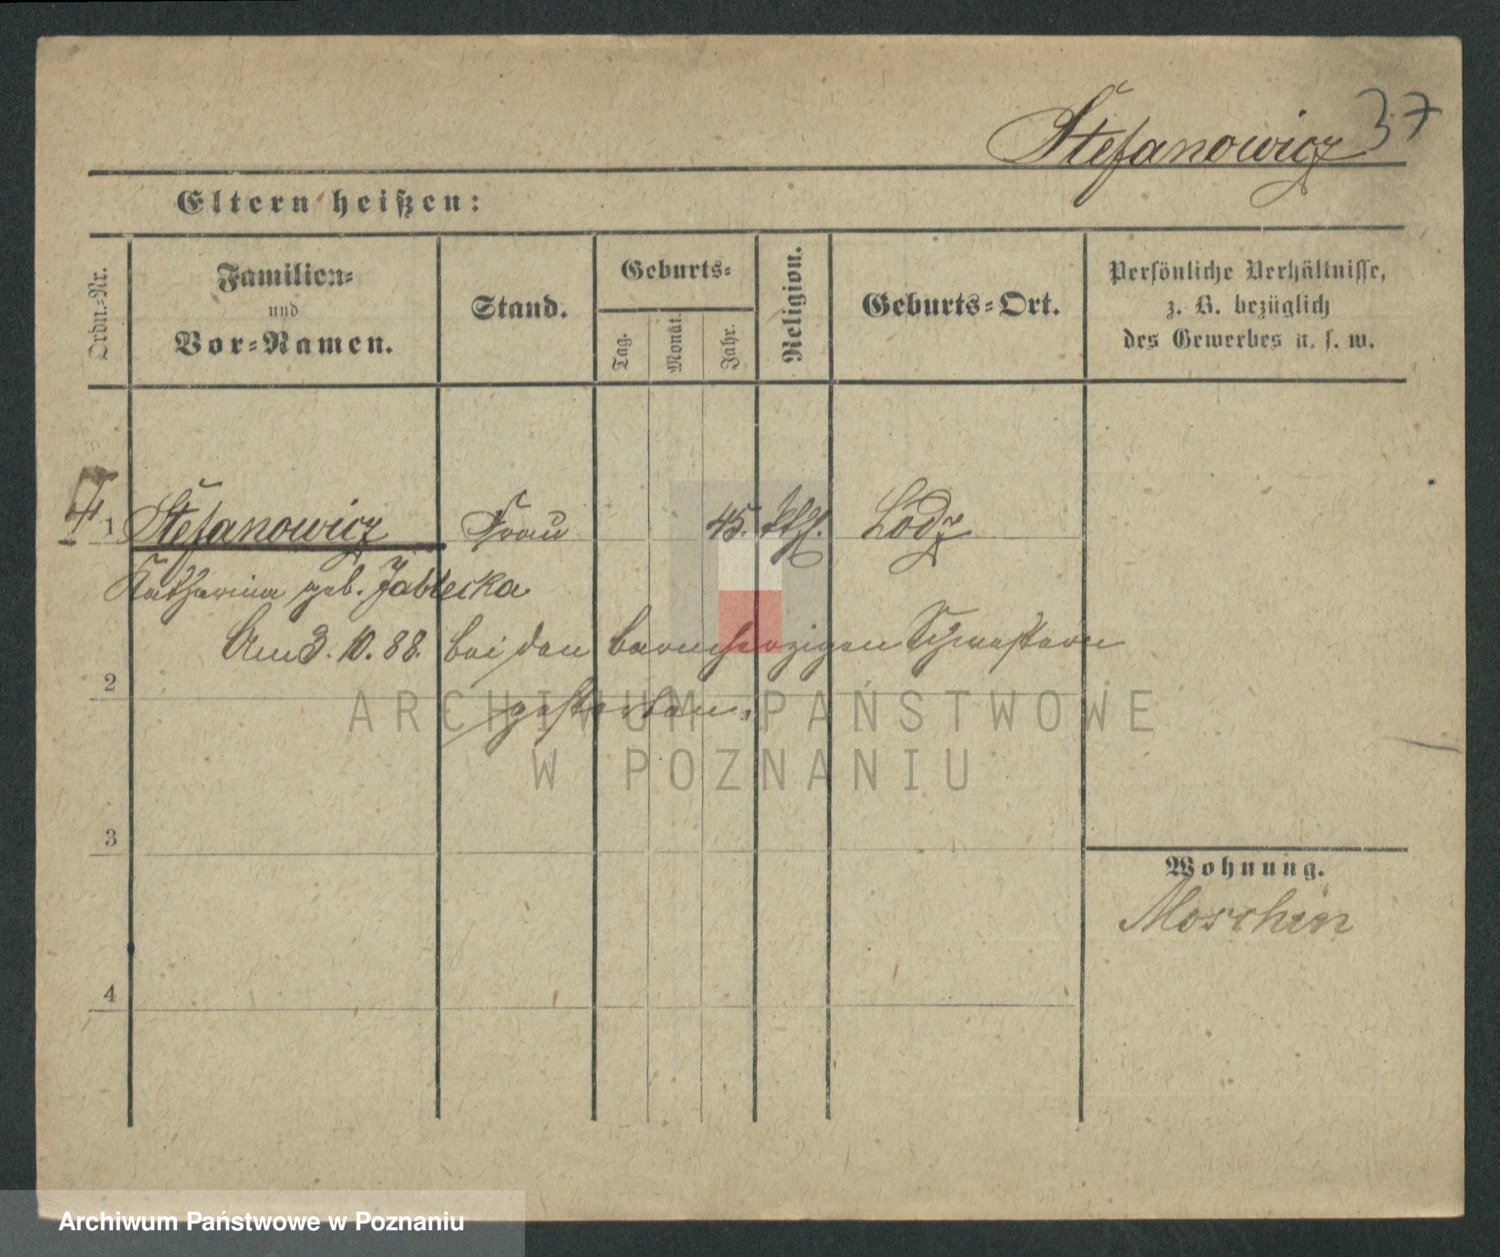 37
Stefanowicz
Eltern heißen:
Ordn.-Nr.
Familien-
und
Vor-Namen.
Stand.
Geburts-
Tag.
Monat.
Jahr.
Religion.
Geburts-Ort.
Persönliche Verhältnisse,
z. B. bezüglich
des Gewerbes u. s. w.
1 Stefanowicz Frau 45. kth. Lodz
Katharina geb. Jablecka
Am 3. 10. 88. bei den barmherzigen Schwestern
2
gestorben.
ARCHIWUM PAŃSTWOWE
W POZNANIU
3
Wohnung.
Moschin
4
Archiwum Państwowe w Poznaniu